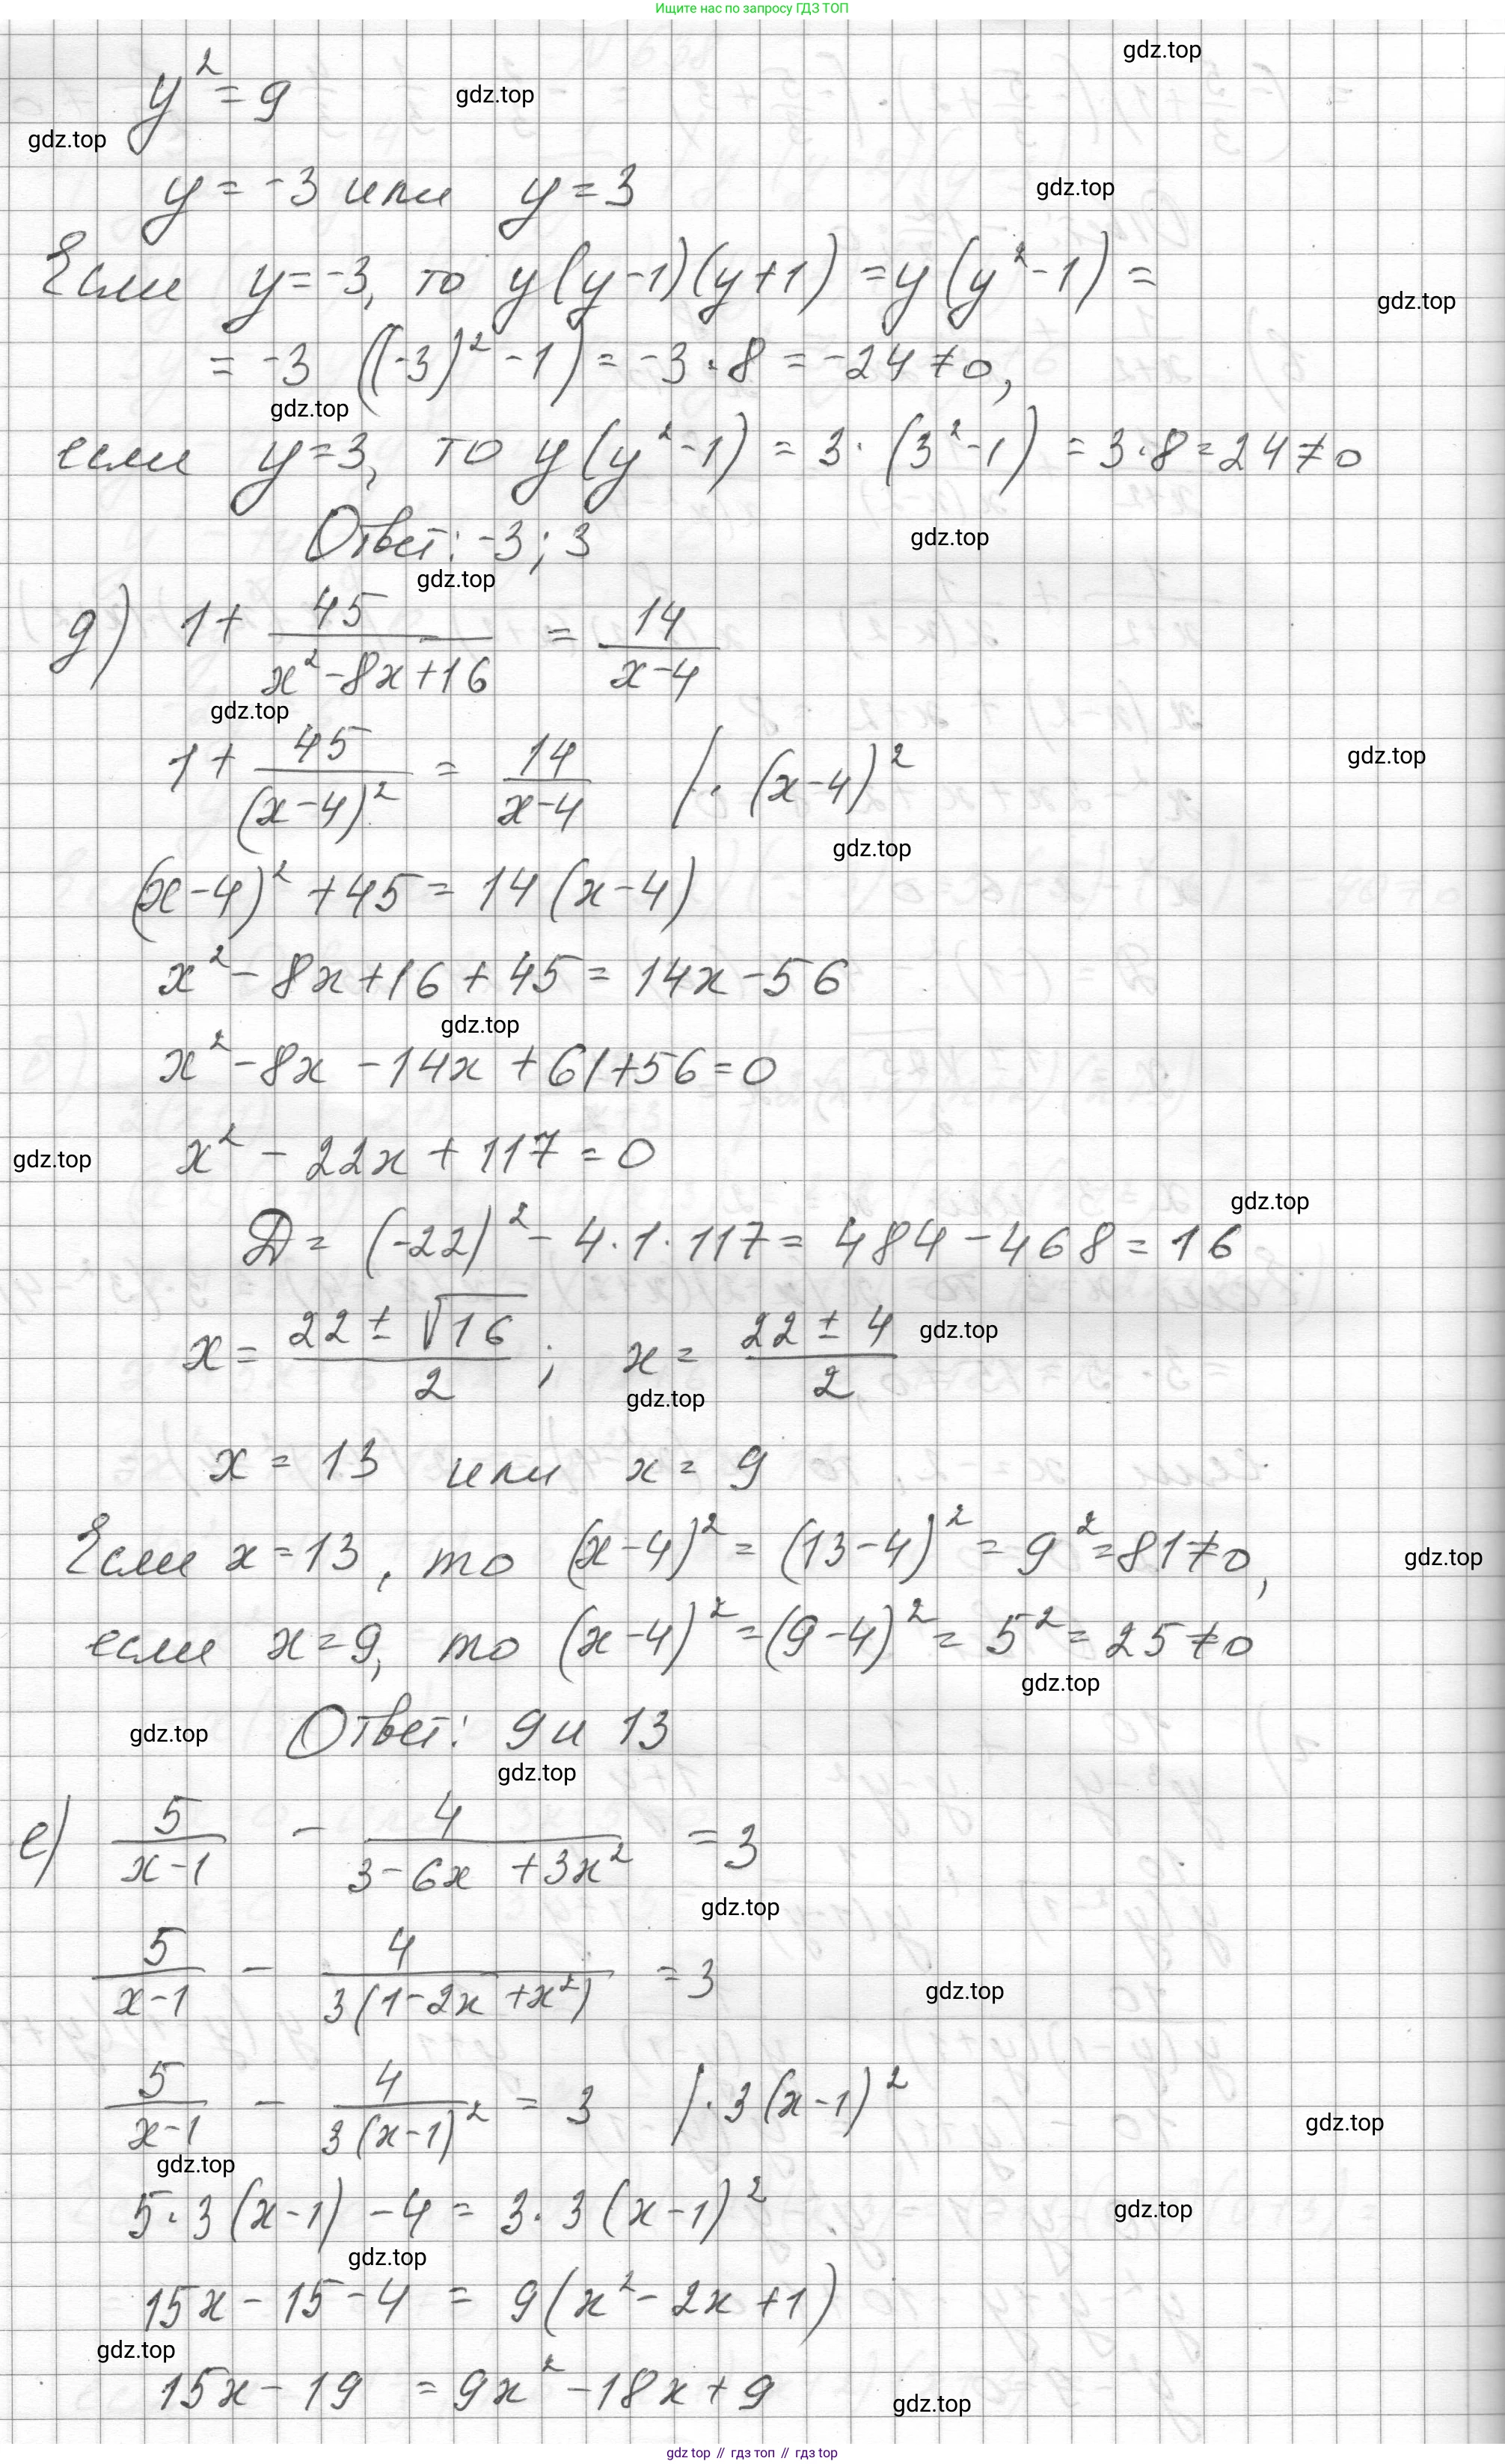 Ищите нас по запросу ГДЗ ТОП
gdz.top
y² = 9
gdz.top
gdz.top
y = -3 или y = 3
gdz.top
Если y = -3, то y(y-1)(y+1) = y(y²-1) =
gdz.top
= -3 ((-3)² - 1) = -3 · 8 = -24 ≠ 0,
gdz.top
если y = 3, то y(y²-1) = 3 · (3²-1) = 3 · 8 = 24 ≠ 0
Ответ: -3; 3
gdz.top
gdz.top
д) 1 + 45/(x²-8x+16) = 14/(x-4)
gdz.top
1 + 45/(x-4)² = 14/(x-4) | · (x-4)²
gdz.top
gdz.top
(x-4)² + 45 = 14(x-4)
x² - 8x + 16 + 45 = 14x - 56
gdz.top
x² - 8x - 14x + 61 + 56 = 0
x² - 22x + 117 = 0
gdz.top
gdz.top
Д = (-22)² - 4 · 1 · 117 = 484 - 468 = 16
x = (22 ± √16)/2 ; x = (22 ± 4)/2
gdz.top
gdz.top
x = 13 или x = 9
Если x = 13, то (x-4)² = (13-4)² = 9² = 81 ≠ 0,
gdz.top
если x = 9, то (x-4)² = (9-4)² = 5² = 25 ≠ 0
gdz.top
gdz.top
Ответ: 9 и 13
gdz.top
е) 5/(x-1) - 4/(3-6x+3x²) = 3
gdz.top
5/(x-1) - 4/(3(1-2x+x²)) = 3
gdz.top
5/(x-1) - 4/(3(x-1)²) = 3 | · 3(x-1)²
gdz.top
gdz.top
5 · 3(x-1) - 4 = 3 · 3(x-1)²
gdz.top
gdz.top
15x - 15 - 4 = 9(x² - 2x + 1)
gdz.top
15x - 19 = 9x² - 18x + 9
gdz.top
gdz top // гдз топ // гдз top